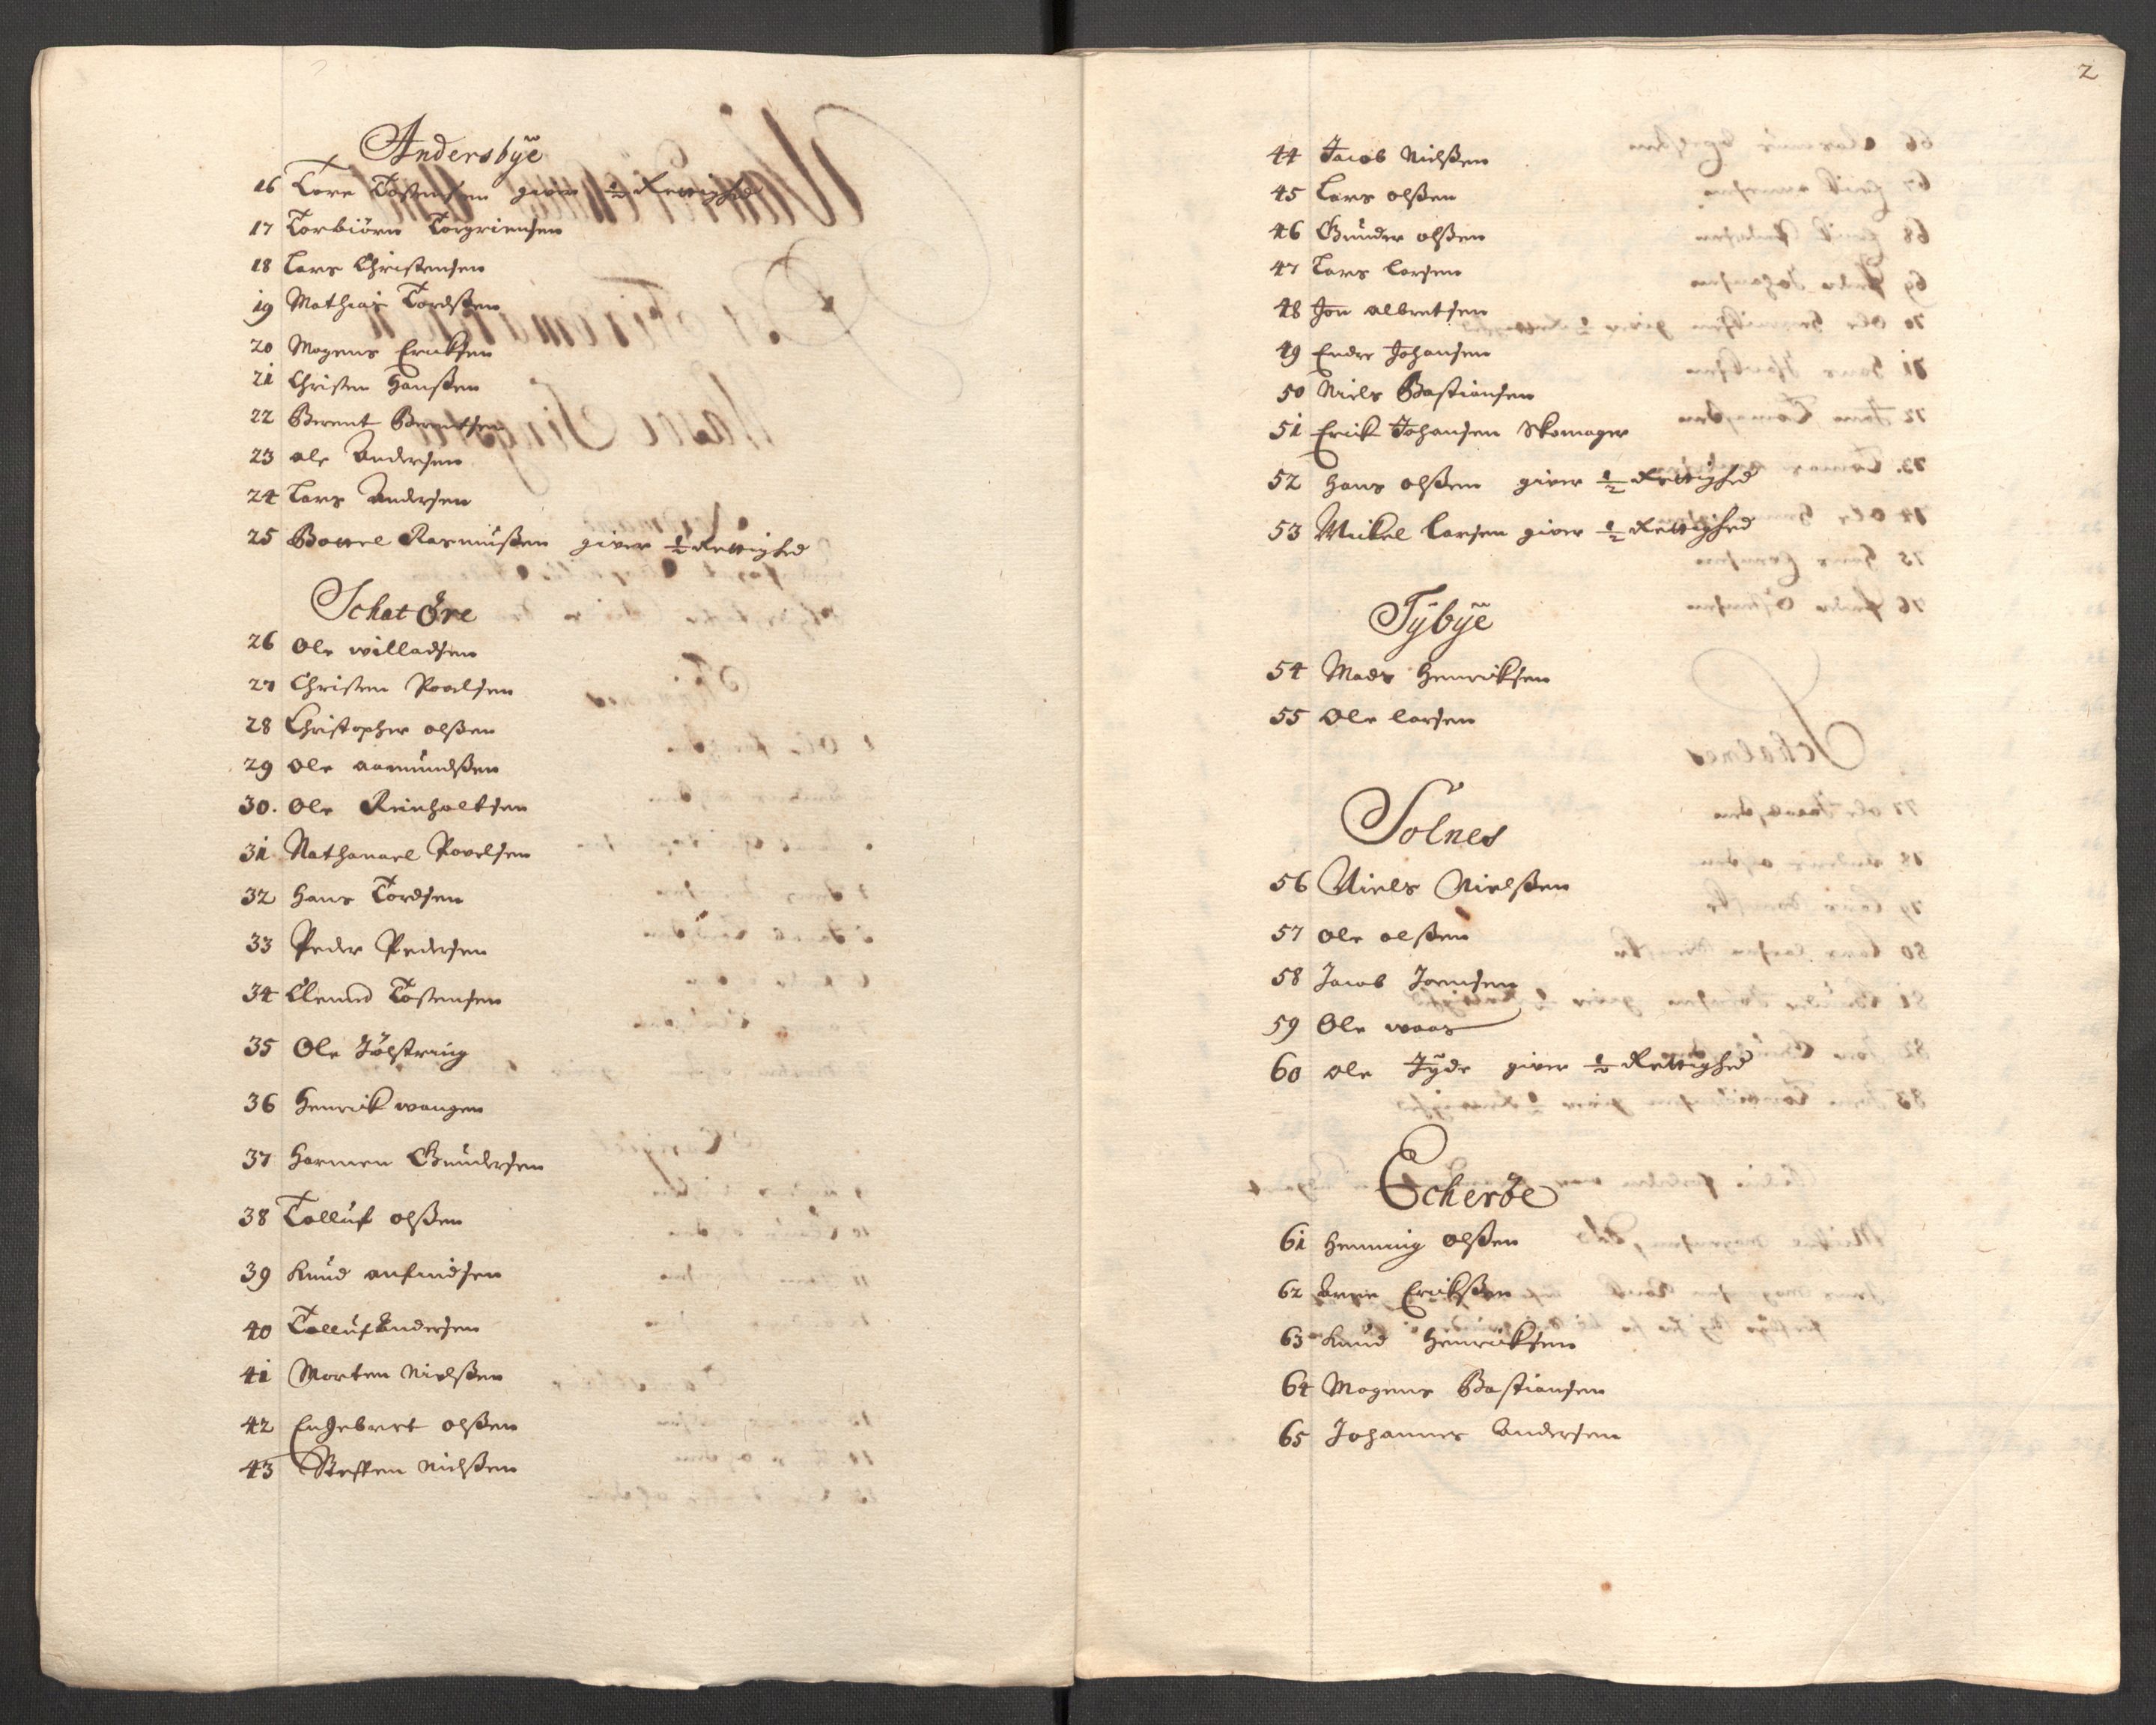 Andersbÿe
16 Tore Tostensen giver ½ Rettighed
17 Torbiörn Torgriensen
18 Lars Christensen
19 Mathias Tordßen
20 Mogens Ericksen
21 Christen Hanßen
22 Berent Berentsen
23 ole Andersen
24 Lars Andersen
25 Bottel Rasmußen giver ½ Rettighed
Schatöre
26 Ole willadsen
27 Christen Povelsen
28 Christopher olßen
29 Ole aamundßen
30. Ole Reinholtsen
31 Nathanael Povelsen
32 Hans Tordsen
33 Peder Pedersen
34 Clemed Tostensen
35 Ole Jölstring
36 Henrick wangen
37 Harmen Gundersen
38 Tolluf olßen
39 Knud anfindsen
40 Tolluf Andersen
41 Morten Nielßen
42 Engebret olßen
43 Steffen Nielßen
2
44 Jacob Nielßen
45 Lars olßen
46 Gunder olßen
47 Lars Larsen
48 Jon albretsen
49 Endre Johansen
50 Niels Bastiansen
51 Erick Johansen Skomager
52 Hans olßen giver ½ Rettighed
53 Mickel Larsen giver ½ Rettighed
Tÿbÿe
54 Mads Henricksen
55 Ole Larsen
Solnes
56 Niels Nielßen
57 Ole olßen
58 Jacob Joensen
59 Ole waas
60 ole Jÿde giver ½ Rettighed
Echeröe
61 Henning olßen
62 Arne Erickßen
63 Knud Henricksen
64 Mogens Bastiansen
65 Johannes Andersen